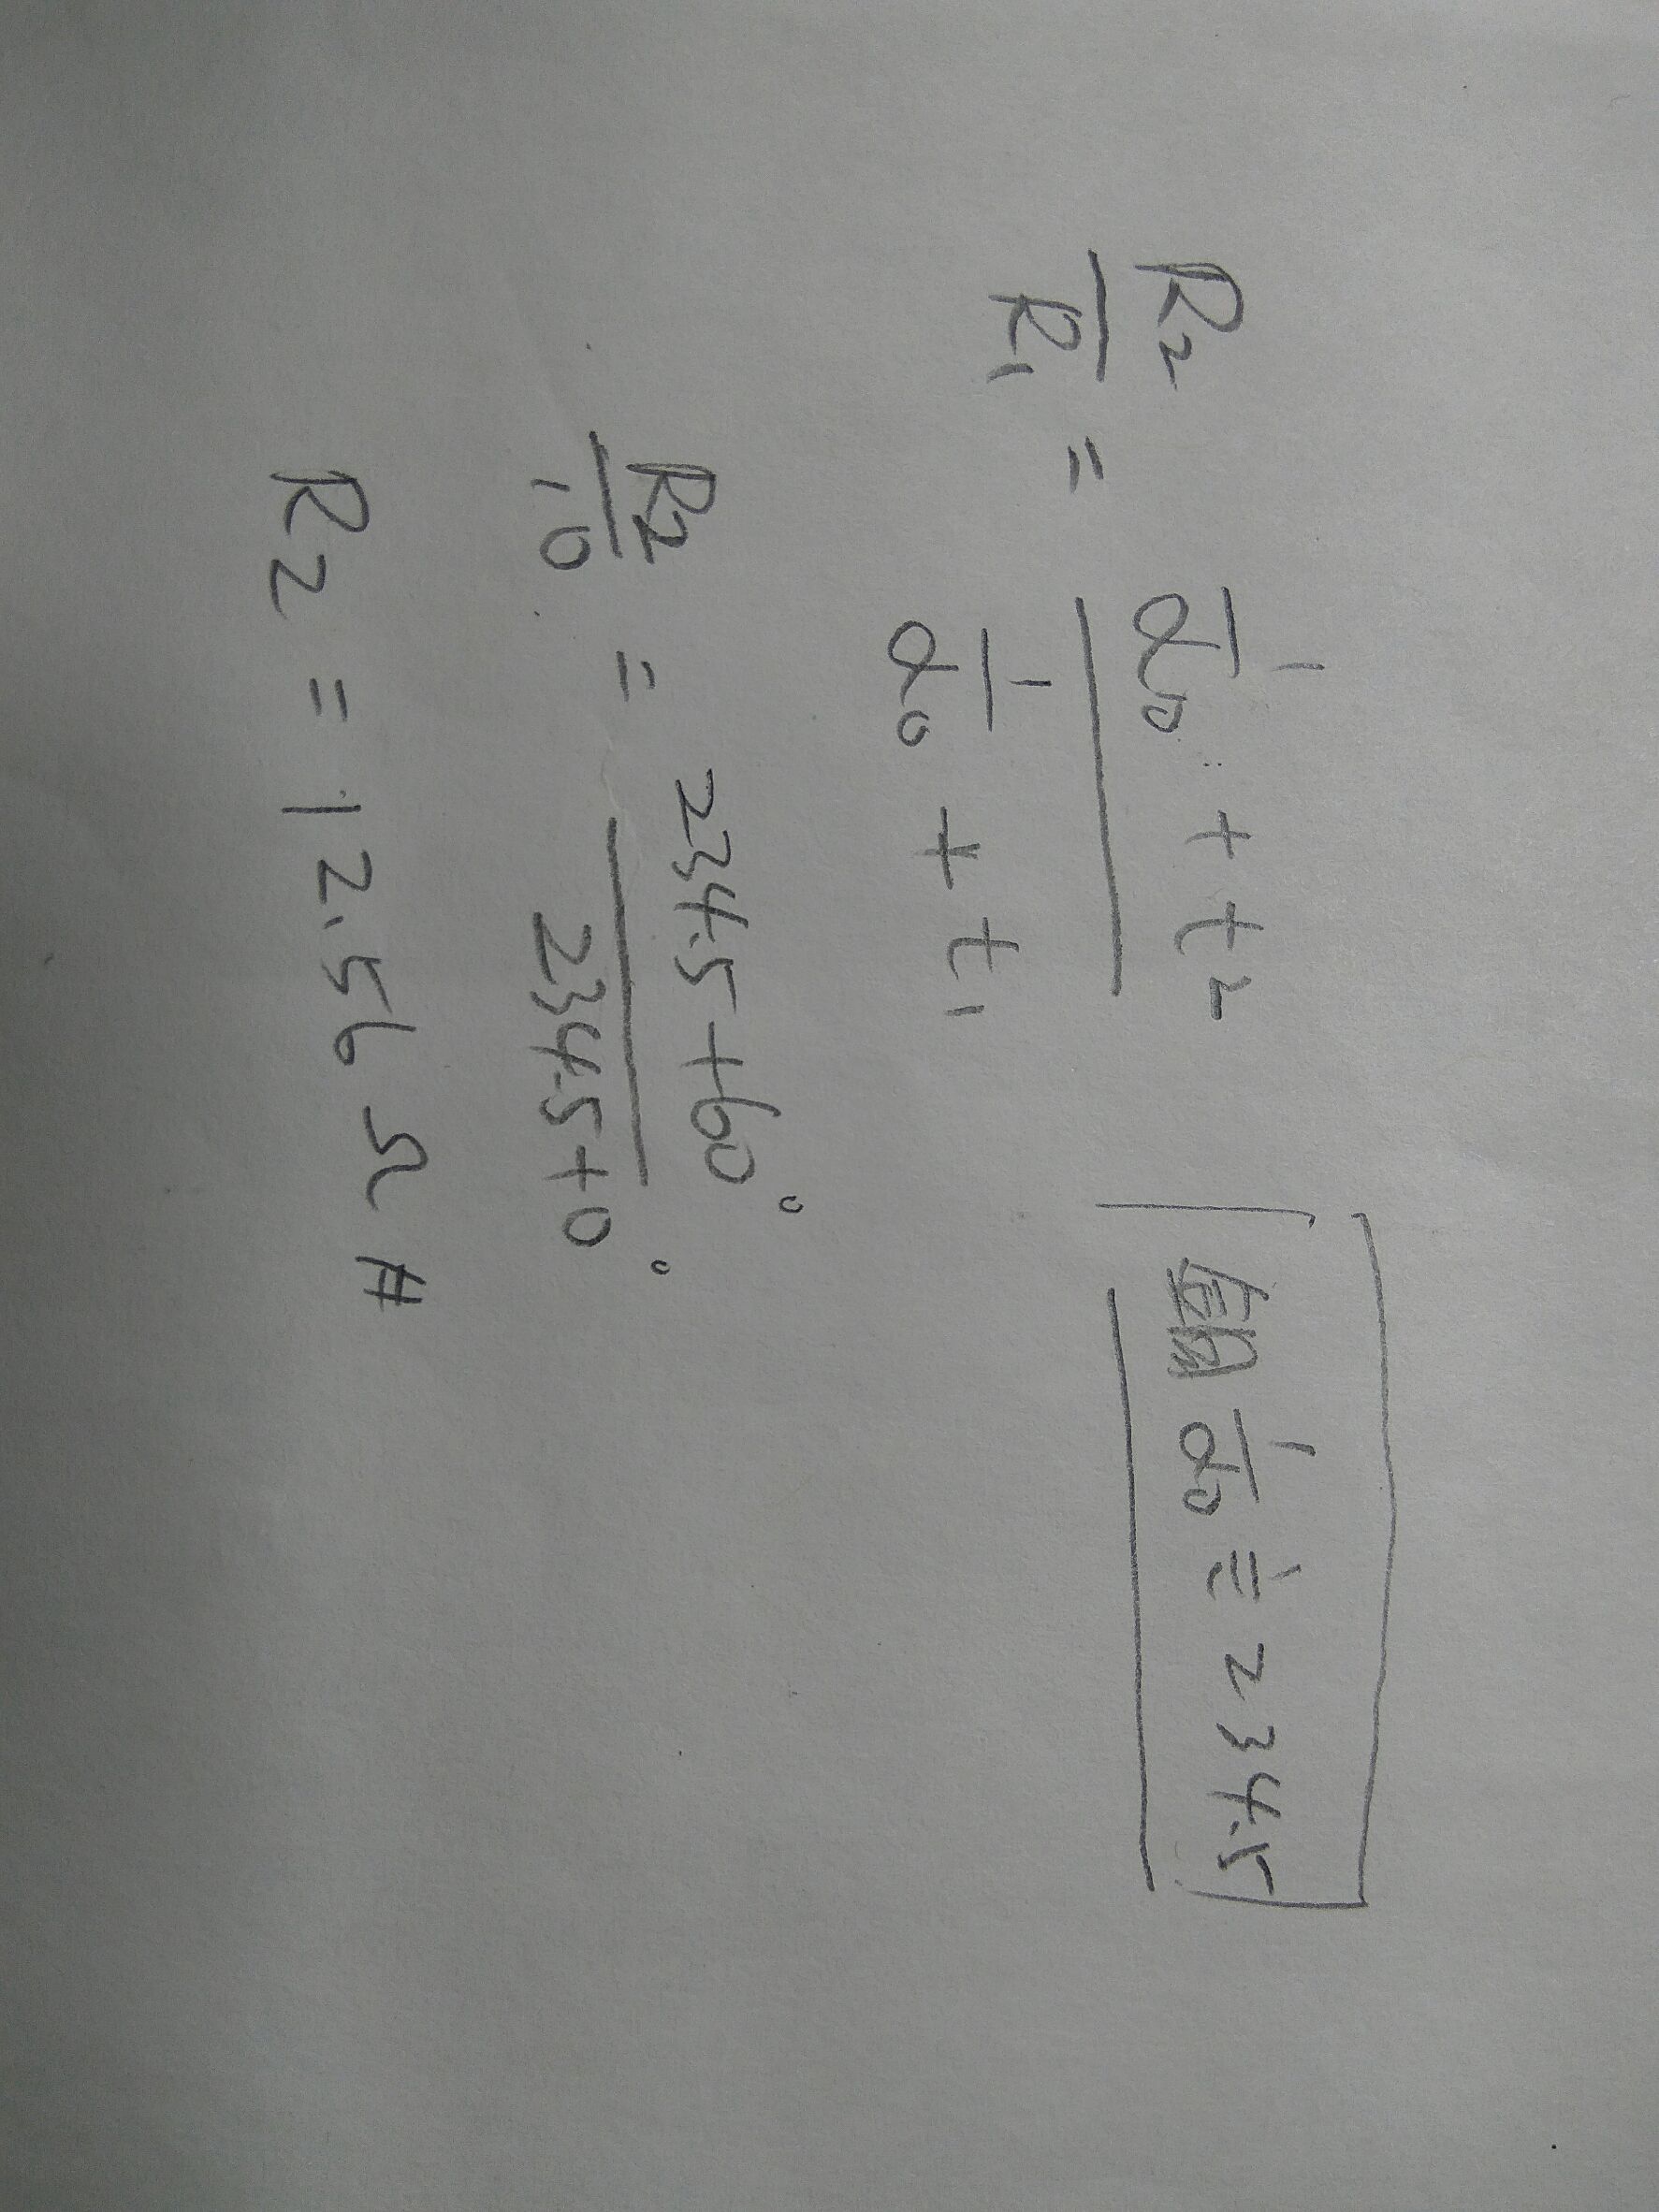 R2/R1 = (1/α0 + t2)/(1/α0 + t1)
銅 1/α0 ≒ 234.5
R2/10 = (234.5+60°)/(234.5+0°)
R2 = 12.56 Ω #